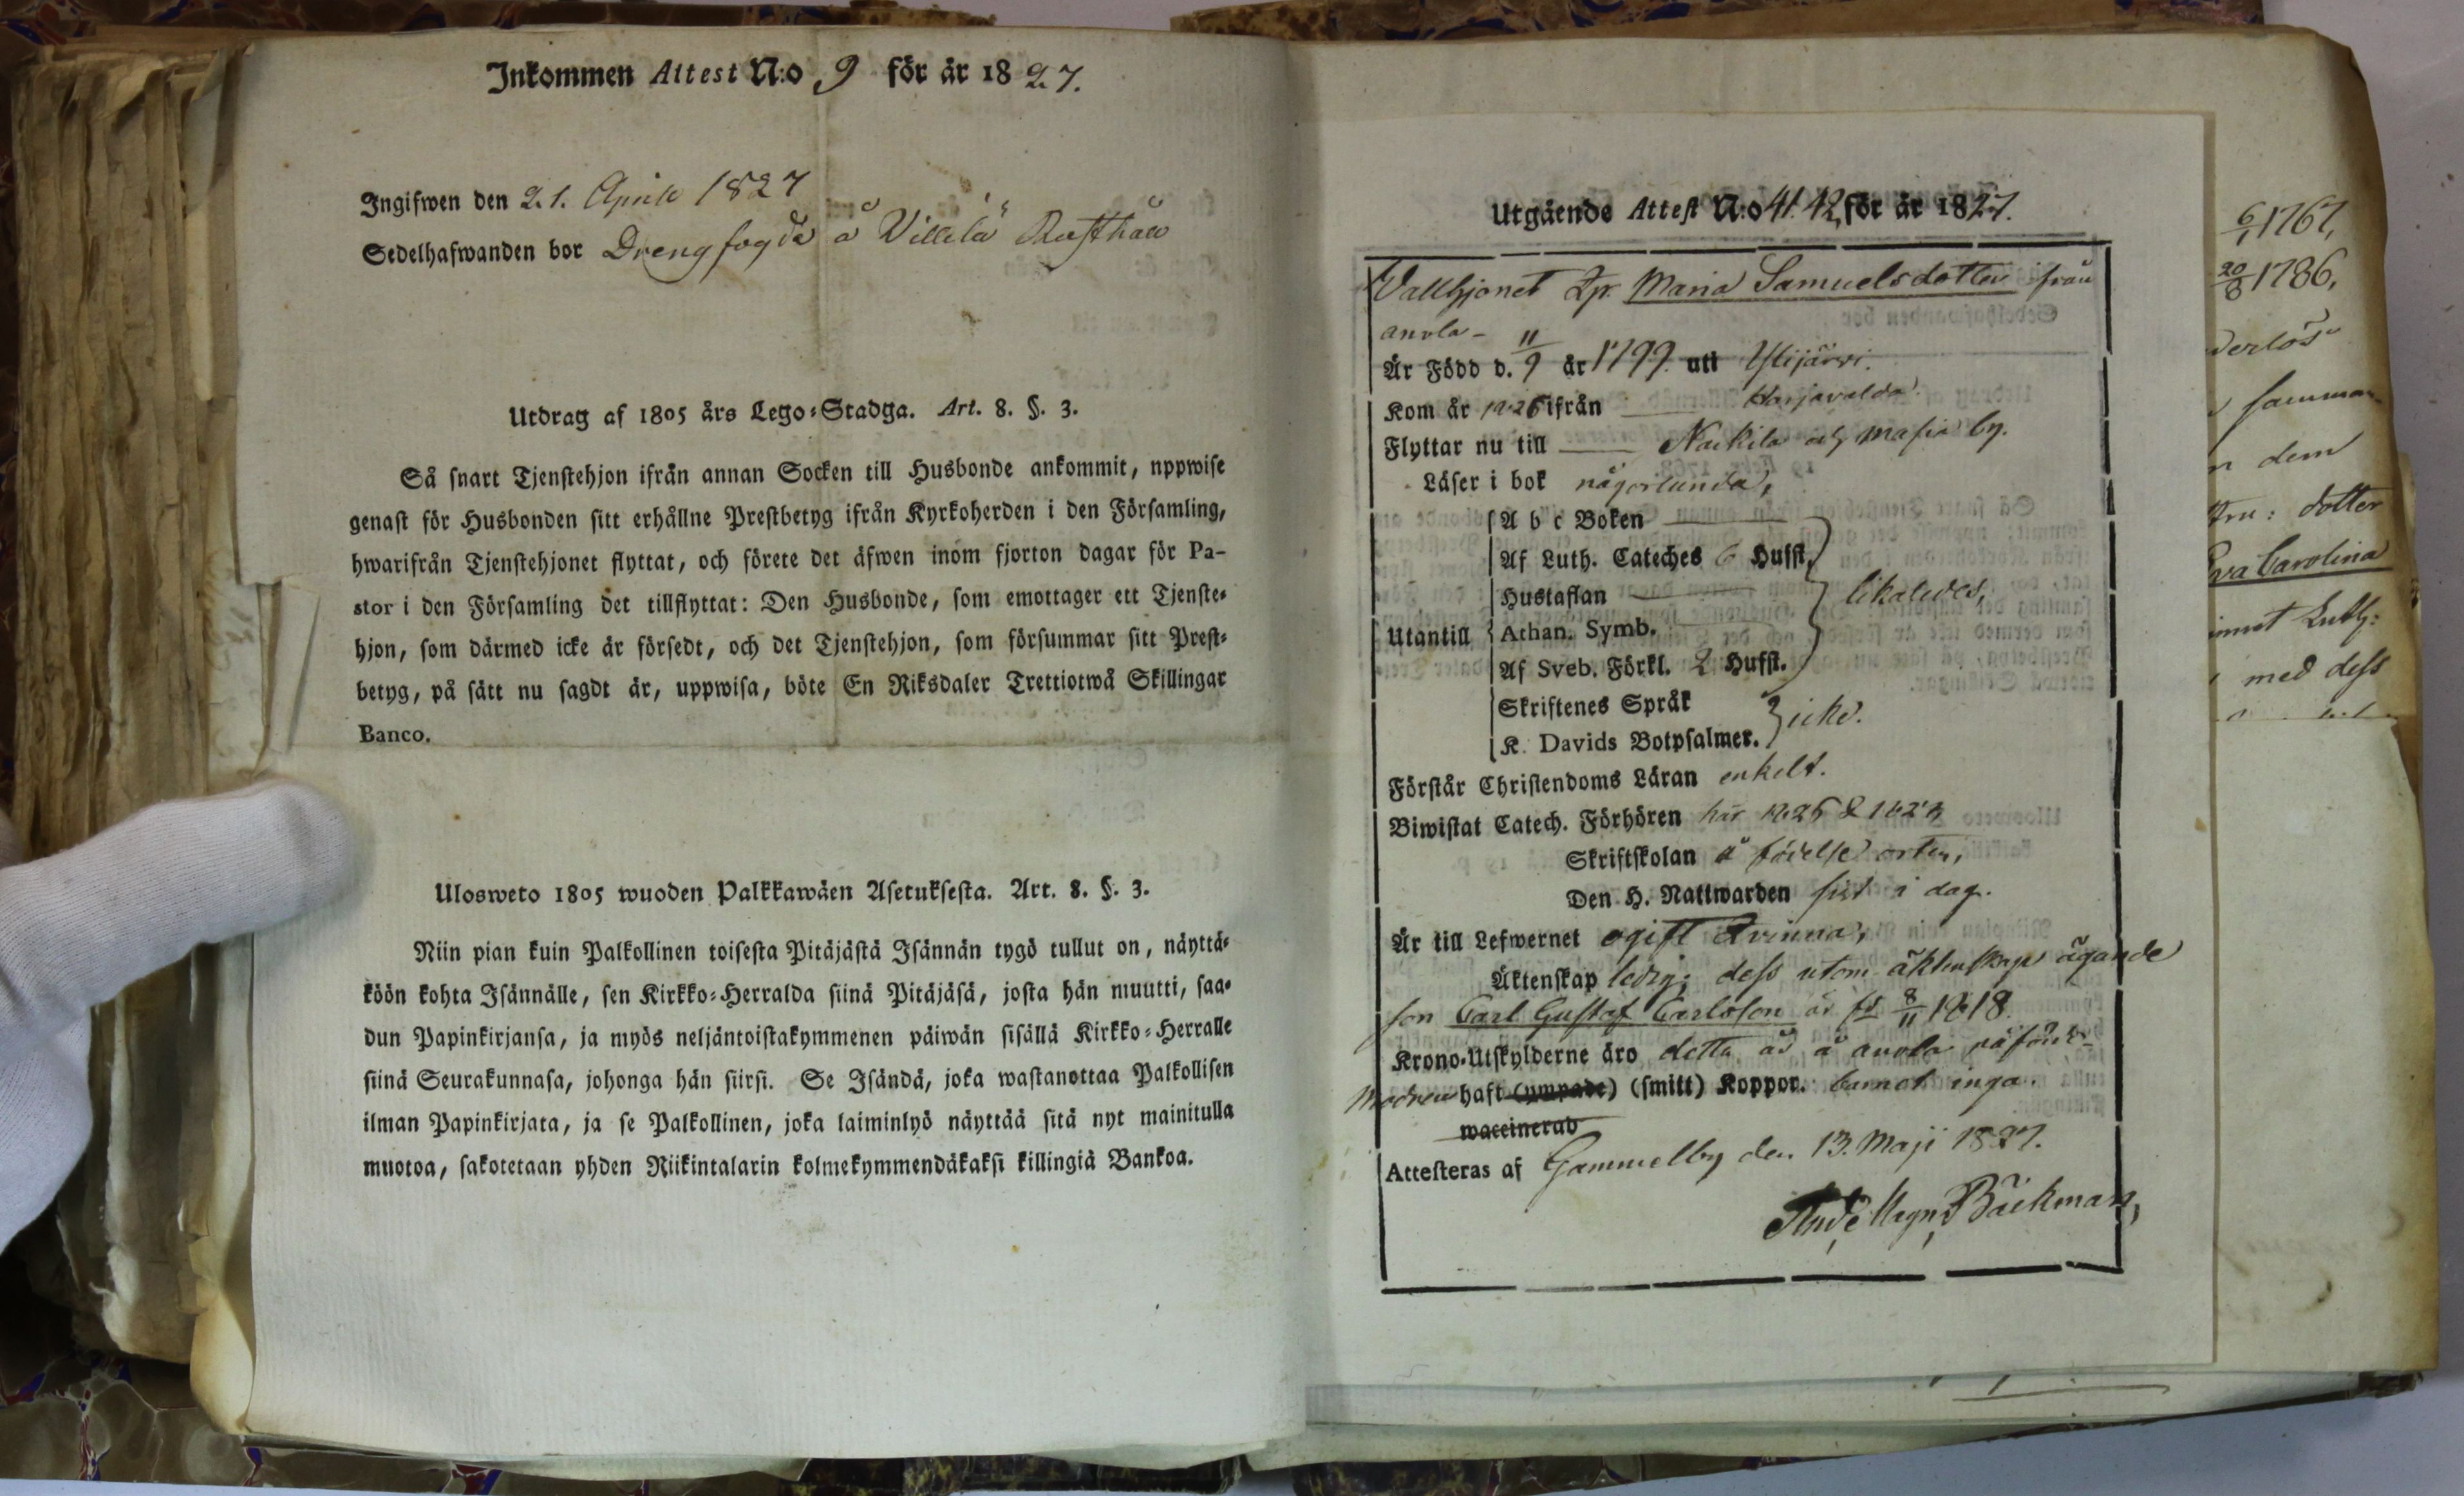 Inkommen Attest N:o 9 för år 1827.
Ingifwen den 21. Aprill 1827
Sedelhafwanden bor Drengfogde å Villilä Rusthåll
Utdrag af 1805 års Lego-Stadga. Art. 8. §. 3.
Så snart Tjenstehjon ifrån annan Socken till Husbonde ankommit, nppwise
genast för Husbonden sitt erhållne Prestbetyg ifrån Kyrkoherden i den Församling,
hwarifrån Tjenstehjonet flyttat, och förete det äfwen inom fjorton dagar för Pa-
stor i den Församling det tillflyttat: Den Husbonde, som emottager ett Tjenste-
hjon, som därmed icke är försedt, och det Tjenstehjon, som försummar sitt Prest-
betyg, på sätt nu sagdt är, uppwisa, böte En Riksdaler Trettiotwå Skillingar
Banco.
Ulosweto 1805 wuoden Palkkawäen Asetuksesta. Art. 8. §. 3.
Niin pian kuin Palkollinen toisesta Pitäjästä Isännän tygö tullut on, näyttä-
köön kohta Isännälle, sen Kirkko-Herralda siinä Pitäjäsä, josta hän muutti, saa-
dun Papinkirjansa, ja myös neljäntoistakymmenen päiwän sisällä Kirkko-Herralle
siinä Seurakunnasa, johonga hän siirsi. Se Isändä, joka wastanottaa Palkollisen
ilman Papinkirjata, ja se Palkollinen, joka laiminlyö näyttää sitä nyt mainitulla
muotoa, sakotetaan yhden Riikintalarin kolmekymmendäkaksi killingiä Bankoa.
Utgående Attest N:o 41.42, för år 1827.
Vallhjonet Maria Samuelsdotter ifrån
anola-
Är Född d. 11/9 år 1799. uti Ylijärvi.
Kom år 1826 ifrån Harjavalda
Flyttar nu till Nackila och Masia by.
Läser i bok någorlunda,
A b c Boken
Af Luth. Cateches 6 Hufst.
Hustaflan likaledes,
Utantill Athan. Symb.
Af Sveb. Förkl. 2 Hufst.
Skriftenes Språk
K. Davids Botpsalmer. icke.
Förstår Christendoms Läran enkelt.
Biwistat Catech. Förhören här 1826 & 1827
Skriftskolan å födelse orten,
Den H. Nattwarden sist i dag.
Är till Lefwernet ogift Qvinna,
Äktenskap ledig; dess utom äktenskap ägande
son Carl Gustaf Carlsson är fd 8/11 1818.
Krono-Utskylderne äro detta år å anola påförde-
Modren haft (ympade) (smitt) Koppor. barnet inga.
waccinerad
Attesteras af Gammelby den 13. Maji 1827.
Bäckman,
6/1 1767,
20/8 1786,
samman
dem
dotter
Eva Carolina
Luth:
med dess